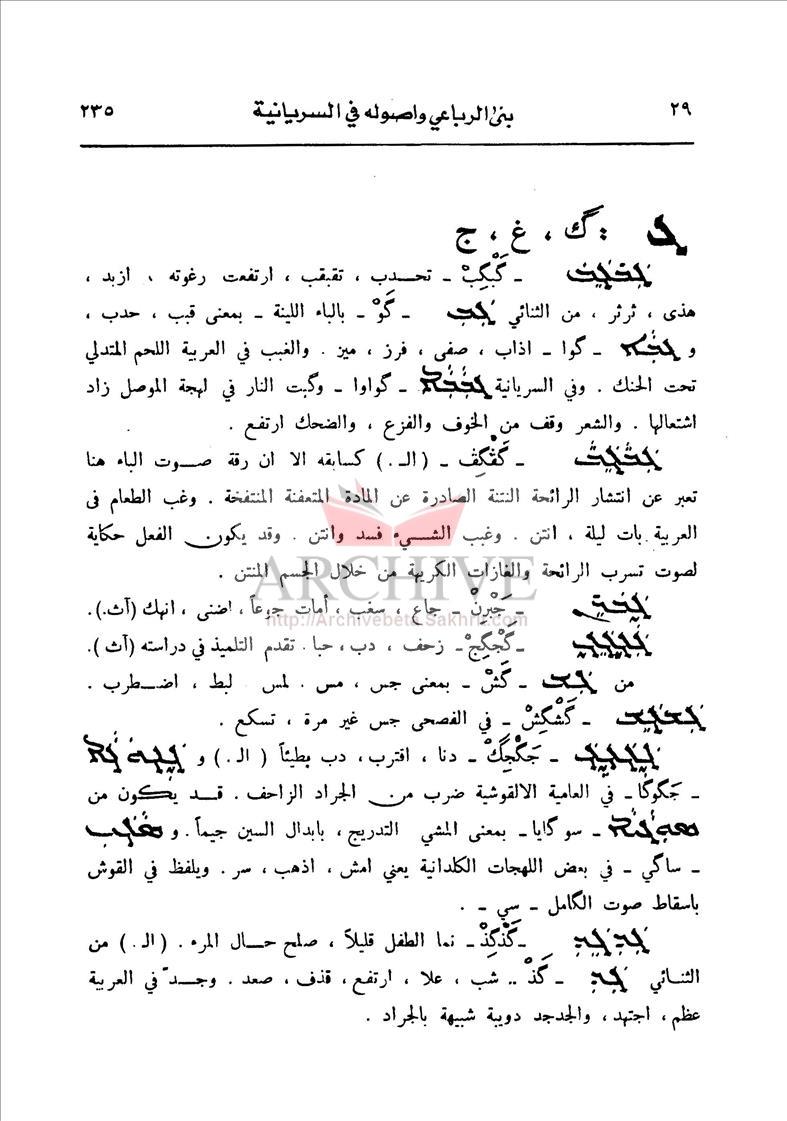 ٢٩ بنى الرباعي واصوله في السريانية ٢٣٥
ܓ : گ ، غ ، ج
ܓܒܓܒ ـ گَبْگِبْ ـ تحـدب ، تقبقب ، ارتفعت رغوته ، ازبد ،
هذى ، ثرثر ، من الثنائي ܓܒ ـ گَوْ ـ بالباء اللينة ـ بمعنى قبب ، حدب ،
و ܓܒܐ ـ گوا ـ اذاب ، صفى ، فرز ، ميز . والغبب في العربية اللحم المتدلي
تحت الحنك . وفي السريانية ـ گواوا ـ وگبت النار في لهجة الموصل زاد
اشتعالها . والشعر وقف من الخوف والفزع ، والضحك ارتفع .
ܓܒܓܒ ـ (الـ .) كسابقه الا ان رقة صـوت الباء هنا
تعبر عن انتشار الرائحة النتنة الصادرة عن المادة المتعفنة المنتفخة . وغب الطعام في
العربية بات ليلة ، انتن . وغب الشـيء فسد وانتن . وقد يكون الفعل حكاية
لصوت تسرب الرائحة والغازات الكريهة من خلال الجسم المنتن .
ARCHIVE
ـ جَبْرنْ ـ جاع ، سغب ، أمات جوعاً ، اضنى ، انهك (آث.).
http://Archivebeta.Sakhrit.com
ـ گَجْگِجْ ـ زحف ، دب ، حبا . تقدم التلميذ في دراسته (آث ).
من ܓܫ ـ گَشْ ـ بمعنى جس ، مس . لمس لبط ، اضـطرب .
ܓܫܓܫ ـ گَشْگِشْ ـ في الفصحى جس غير مرة ، تسكع .
ـ جَگْجِگْ ـ دنا ، اقترب ، دب بطيئاً ( الـ .) و
ـ جَگوگا ـ في العامية الالقوشية ضرب من الجراد الزاحف . قـد يكون من
ـ سوگايا ـ بمعنى المشي التدريج ، بابدال السين جيماً . و
ـ ساگي ـ في بعض اللهجات الكلدانية يعني امش ، اذهب ، سر . ويلفظ في القوش
باسقاط صوت الكامل ـ سي ـ .
ܓܕܓܕ ـ گَذْگِذْ ـ نما الطفل قليلاً ، صلح حـال المرء . (الـ .) من
الثنـائي ܓܕ ـ گَذْ .. شب ، علا ، ارتفع ، قذف ، صعد . وجـدّ في العربية
عظم ، اجتهد ، والجدجد دويبة شبيهة بالجراد .